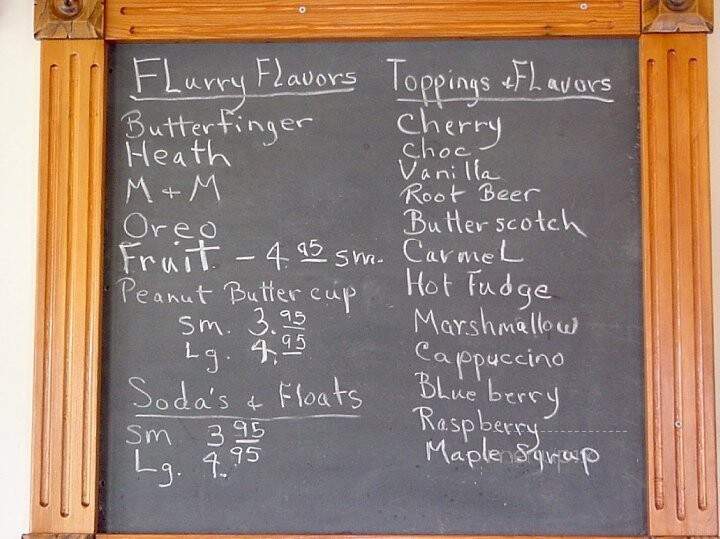 FLurry FLavors
Butterfinger
Heath
M + M
Oreo
Fruit - 4.95 sm.
Peanut Butter cup
sm. 3.95
Lg. 4.95
Soda's & Floats
sm 3 95
Lg. 4.95
Toppings & FLavors
Cherry
Choc
Vanilla
Root Beer
Butterscotch
CarmeL
Hot Fudge
Marshmallow
Cappuccino
BLueberry
Raspberry
Maple Syrup